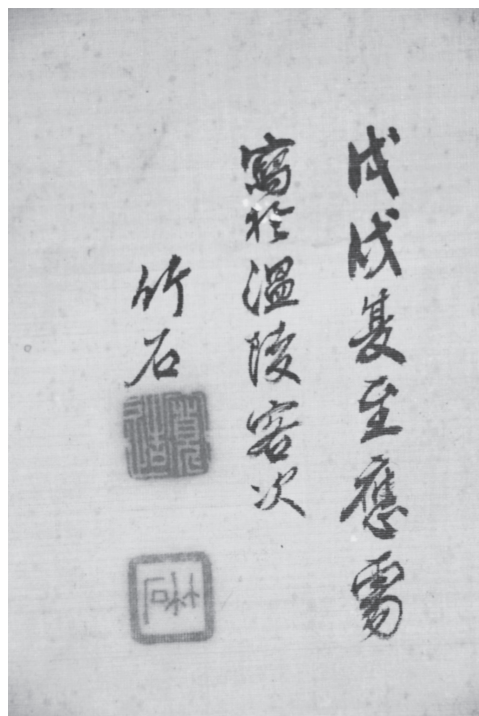 戊戌夏至應
寫於溫陵客次
竹石